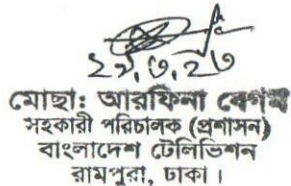 ২৯.৩.২৩
মোছা: আরফিনা বেগম
সহকারী পরিচালক (প্রশাসন)
বাংলাদেশ টেলিভিশন
রামপুরা, ঢাকা।